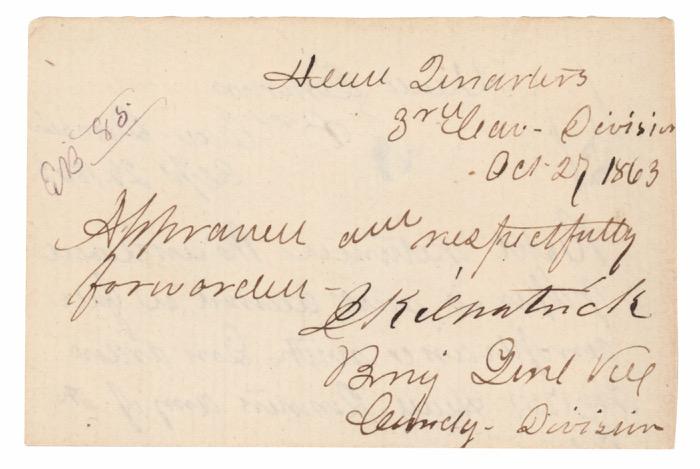 Head Quarters
3rd Cav - Division
Oct 27, 1863
EB 85
Approved and respectfully
forwarded -
Kilpatrick
Brig Genl Vol
Comdg - Division